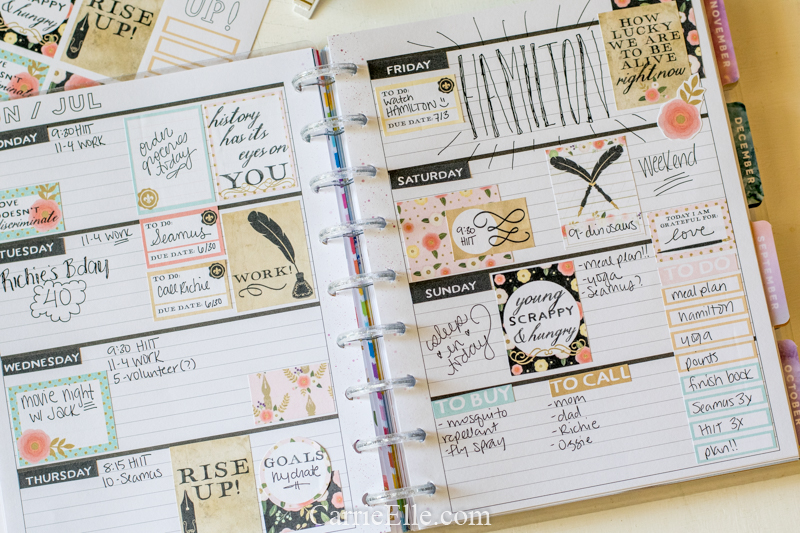 RISE
UP!
UP!
UN / JUL
MONDAY
9:30 HIIT
11-4 WORK
order
groceries
today
history
has its
eyes on
YOU
LOVE
DOESN'T
discriminate
TO DO:
Seamus
DUE DATE: 6/30
TUESDAY
11-4 WORK
Richie's Bday
40
TO DO:
Call Richie
DUE DATE: 6/30
WORK!
WEDNESDAY
9:30 HIIT
11-4 WORK
5-volunteer(?)
movie night
w/ Jack
THURSDAY
8:15 HIIT
10-Seamus
RISE
UP!
GOALS
hydrate
FRIDAY
TO DO:
Watch
HAMILTON
DUE DATE: 7/3
HAMILTON
HOW
LUCKY
WE ARE
TO BE
ALIVE
right now
SATURDAY
9:30
HIIT
9-dinosaurs
Weekend
TODAY I AM
GRATEFUL FOR:
love
SUNDAY
sleep
in
today
young
SCRAPPY
& hungry
-meal plan!!
-yoga
-Seamus?
TO DO
meal plan
hamilton
yoga
points
finish book
Seamus 3x
HIIT 3x
plan!!
TO BUY
-mosquito
repellant
-fly spray
TO CALL
-mom
-dad
-Richie
-Ossie
NOVEMBER
DECEMBER
SEPTEMBER
OCTOBER
CarrieElle.com